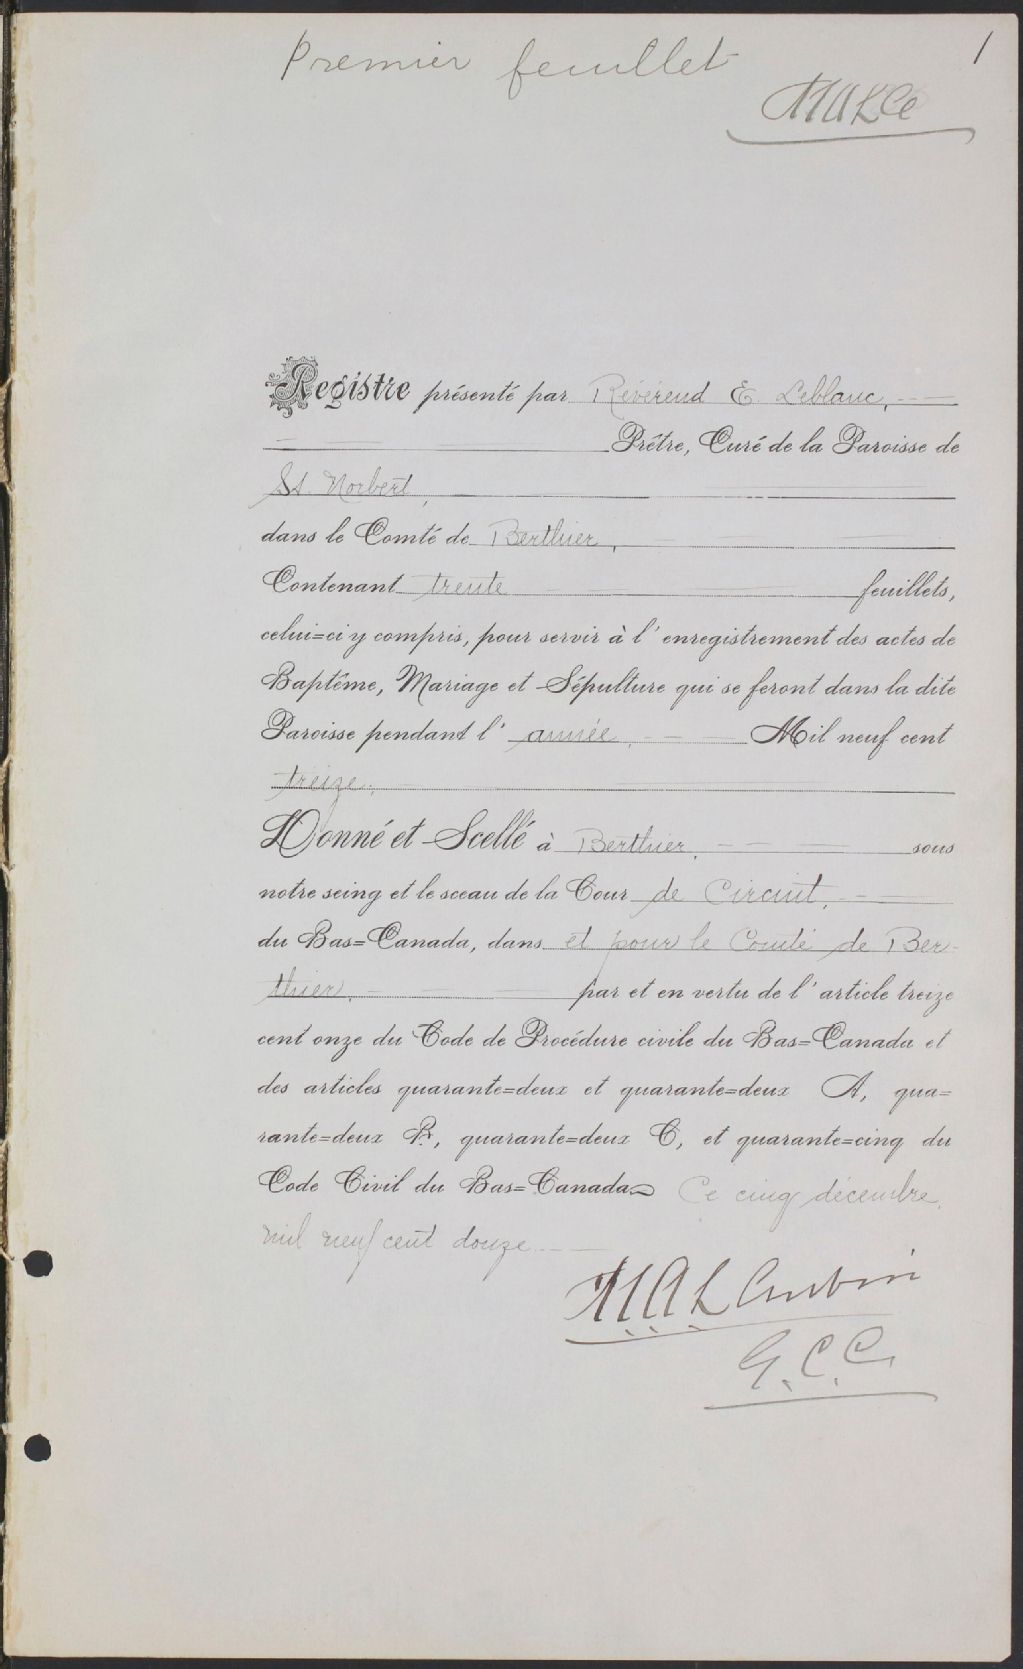 Premier feuillet
1
Registre présenté par Révérend E. Leblanc,
Prêtre, Curé de la Paroisse de
St Norbert,
dans le Comté de Berthier,
Contenant trente feuillets,
celui=ci y compris, pour servir à l'enregistrement des actes de
Baptême, Mariage et Sépulture qui se feront dans la dite
Paroisse pendant l'année, Mil neuf cent
treize,
Donné et Scellé à Berthier, sous
notre seing et le sceau de la Cour de Circuit,
du Bas=Canada, dans et pour le Comté de Ber-
thier, par et en vertu de l'article treize
cent onze du Code de Procédure civile du Bas=Canada et
des articles quarante=deux et quarante=deux A, qua=
rante=deux B, quarante=deux C, et quarante=cinq du
Code Civil du Bas=Canada Ce cinq décembre,
mil neuf cent douze
G. C. C.